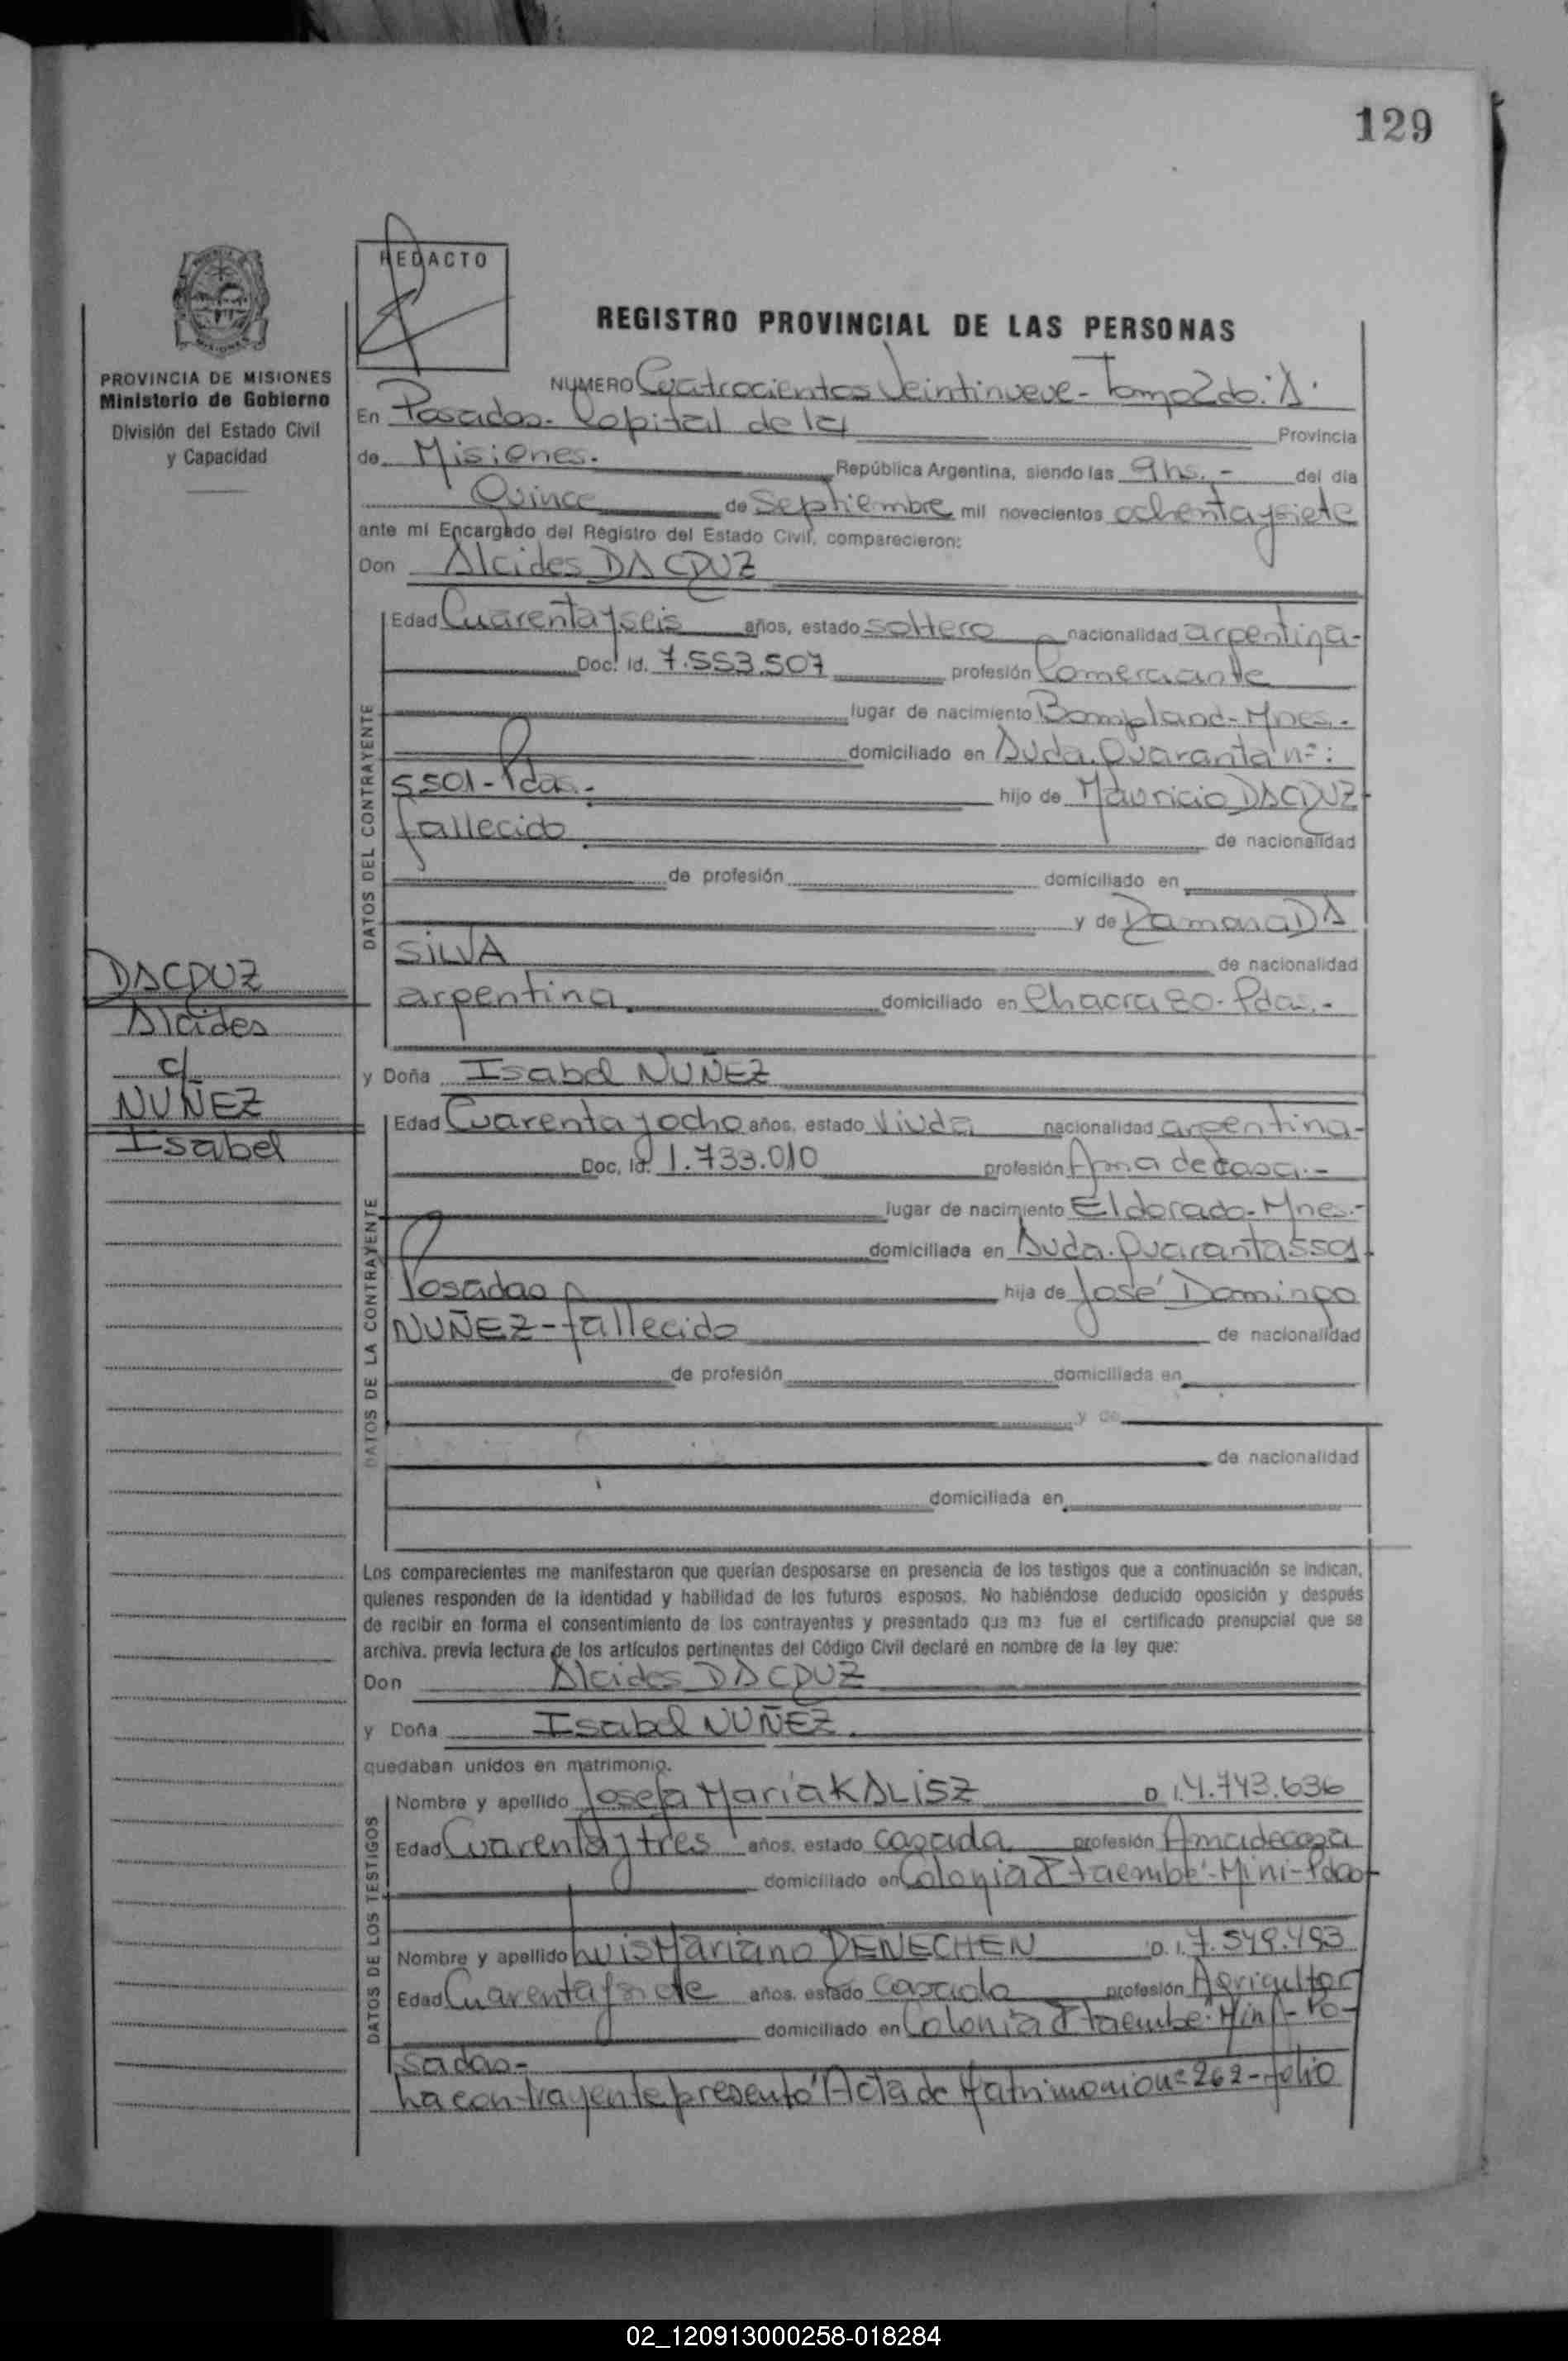 129
REDACTO
REGISTRO PROVINCIAL DE LAS PERSONAS
PROVINCIA DE MISIONES
Ministerio de Gobierno
División del Estado Civil
y Capacidad
NUMERO Cuatrocientos Veintinueve - Tomo 2do. "A"
En Posadas. Capital de la Provincia
de Misiones. República Argentina, siendo las 9 hs. - del día
Quince de Septiembre mil novecientos ochenta y siete
ante mí Encargado del Registro del Estado Civil, comparecieron:
Don Alcides DA CRUZ
DATOS DEL CONTRAYENTE
Edad Cuarenta y seis años, estado soltero nacionalidad argentina-
Doc. Id. 7.553.507 profesión Comerciante
lugar de nacimiento Bompland - Mnes.-
domiciliado en Avda. Quaranta nº:
5501 - Pdas.- hijo de Mauricio DA CRUZ
fallecido de nacionalidad
de profesión domiciliado en
y de Ramona DA
SILVA de nacionalidad
argentina domiciliado en Chacra 80 - Pdas.-
DA CRUZ
Alcides
c/
NUÑEZ
Isabel
y Doña Isabel NUÑEZ
DATOS DE LA CONTRAYENTE
Edad Cuarenta y ocho años, estado Viuda nacionalidad argentina-
Doc. Id. 1.733.010 profesión Ama de casa.-
lugar de nacimiento Eldorado - Mnes.-
domiciliada en Avda. Quaranta 5501
Posadas hija de José Domingo
NUÑEZ - fallecido de nacionalidad
de profesión domiciliada en
y de
de nacionalidad
domiciliada en
Los comparecientes me manifestaron que querían desposarse en presencia de los testigos que a continuación se indican,
quienes responden de la identidad y habilidad de los futuros esposos. No habiéndose deducido oposición y después
de recibir en forma el consentimiento de los contrayentes y presentado que me fue el certificado prenupcial que se
archiva. previa lectura de los artículos pertinentes del Código Civil declaré en nombre de la ley que:
Don Alcides DA CRUZ
y Doña Isabel NUÑEZ.
quedaban unidos en matrimonio.
DATOS DE LOS TESTIGOS
Nombre y apellido Josefa María KALISZ D.I. 4.743.636
Edad Cuarenta y tres años, estado casada profesión Ama de casa
domiciliado en Colonia Itaembé - Mini - Pdas-
Nombre y apellido Luis Mariano DENECHEN D.I. 7.549.493
Edad Cuarenta y siete años, estado casado profesión Agricultor
domiciliado en Colonia Itaembé - Mini - Po-
sadas-
La contrayente presentó Acta de Matrimonio nº 262 - folio
02_120913000258-018284